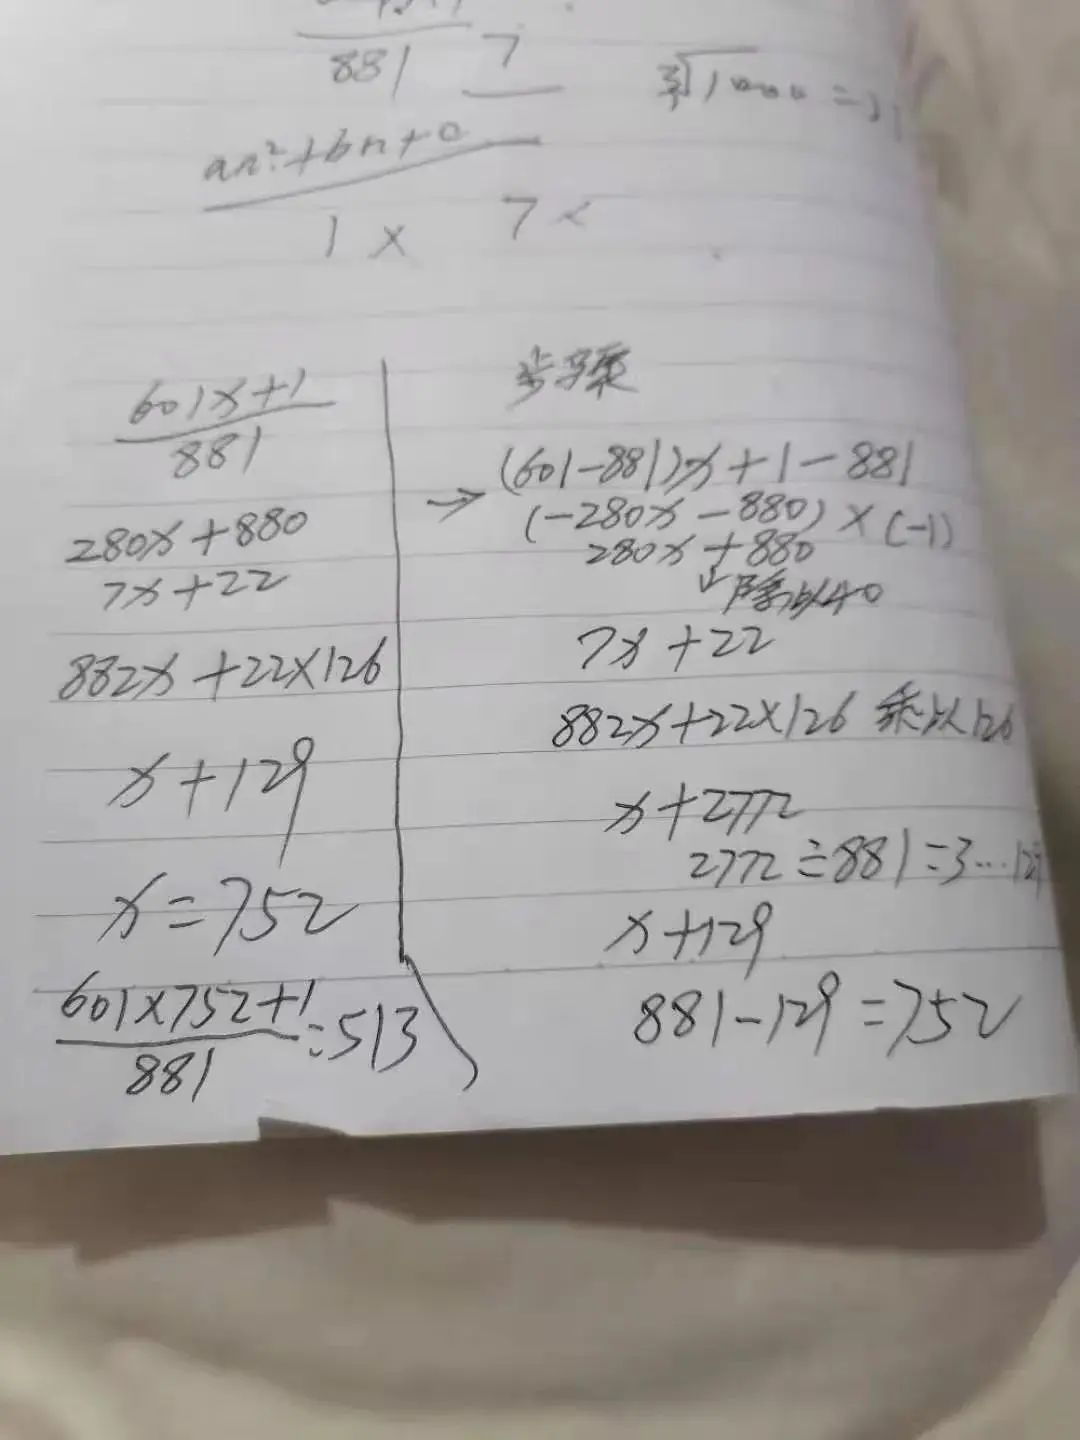 881
7
∛1000 =
an²+bn+c
1 ×
7 <
601x+1
881
280x+880
7x+22
882x+22×126
x+129
x=752
601×752+1
881
=513
步骤
→ (601-881)x+1-881
(-280x-880)×(-1)
280x+880
↓除以40
7x+22
882x+22×126 乘以126
x+2772
2772÷881=3...129
x+129
881-129=752